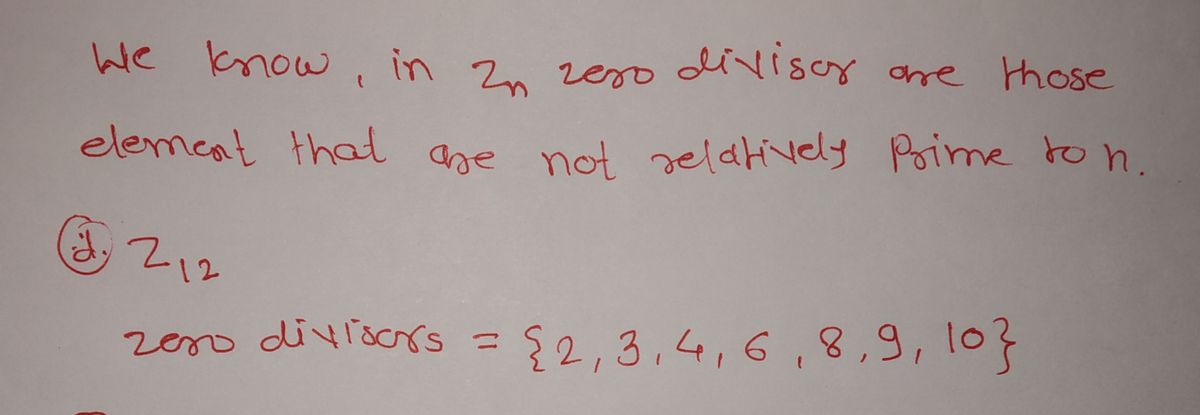 We know, in Zn zero divisor are those
element that are not relatively Prime to n.
d. Z12
zero divisors = {2, 3, 4, 6, 8, 9, 10}